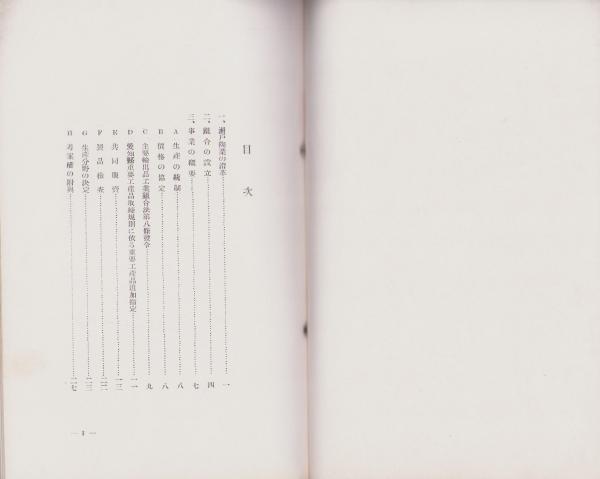 目次
一、瀬戸陶業の沿革……一
二、組合の設立……四
三、事業の概要……七
A 生産の統制……八
B 価格の協定……八
C 主要輸出品工業組合法第八條發令……九
D 愛知縣重要工産品取締規則に依る重要工産品追加指定……一一
E 共同販賣……一三
F 製品檢査……二二
G 生産分野の決定……二三
H 考案權の附與……二七
— 1 —